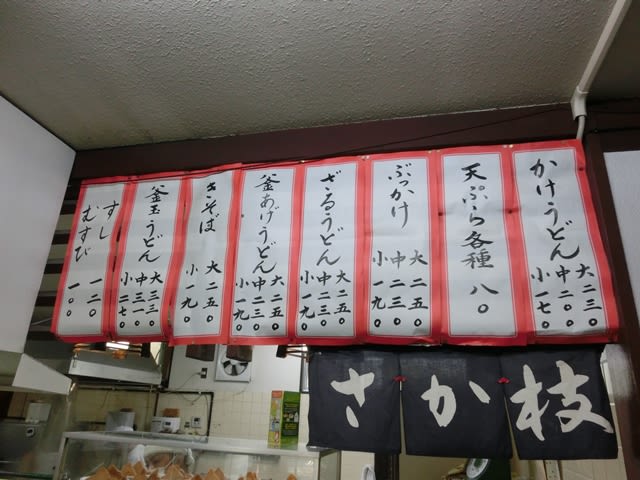 かけうどん
大 二三〇
中 二〇〇
小 一七〇
天ぷら各種 八〇
ぶっかけ
大 二五〇
中 二三〇
小 一九〇
ざるうどん
大 二五〇
中 二三〇
小 一九〇
釜あげうどん
大 二五〇
中 二三〇
小 一九〇
きそば
大 二五〇
小 一九〇
釜玉うどん
大 三三〇
中 三一〇
小 二七〇
すし 一二〇
むすび 一〇〇
さか枝